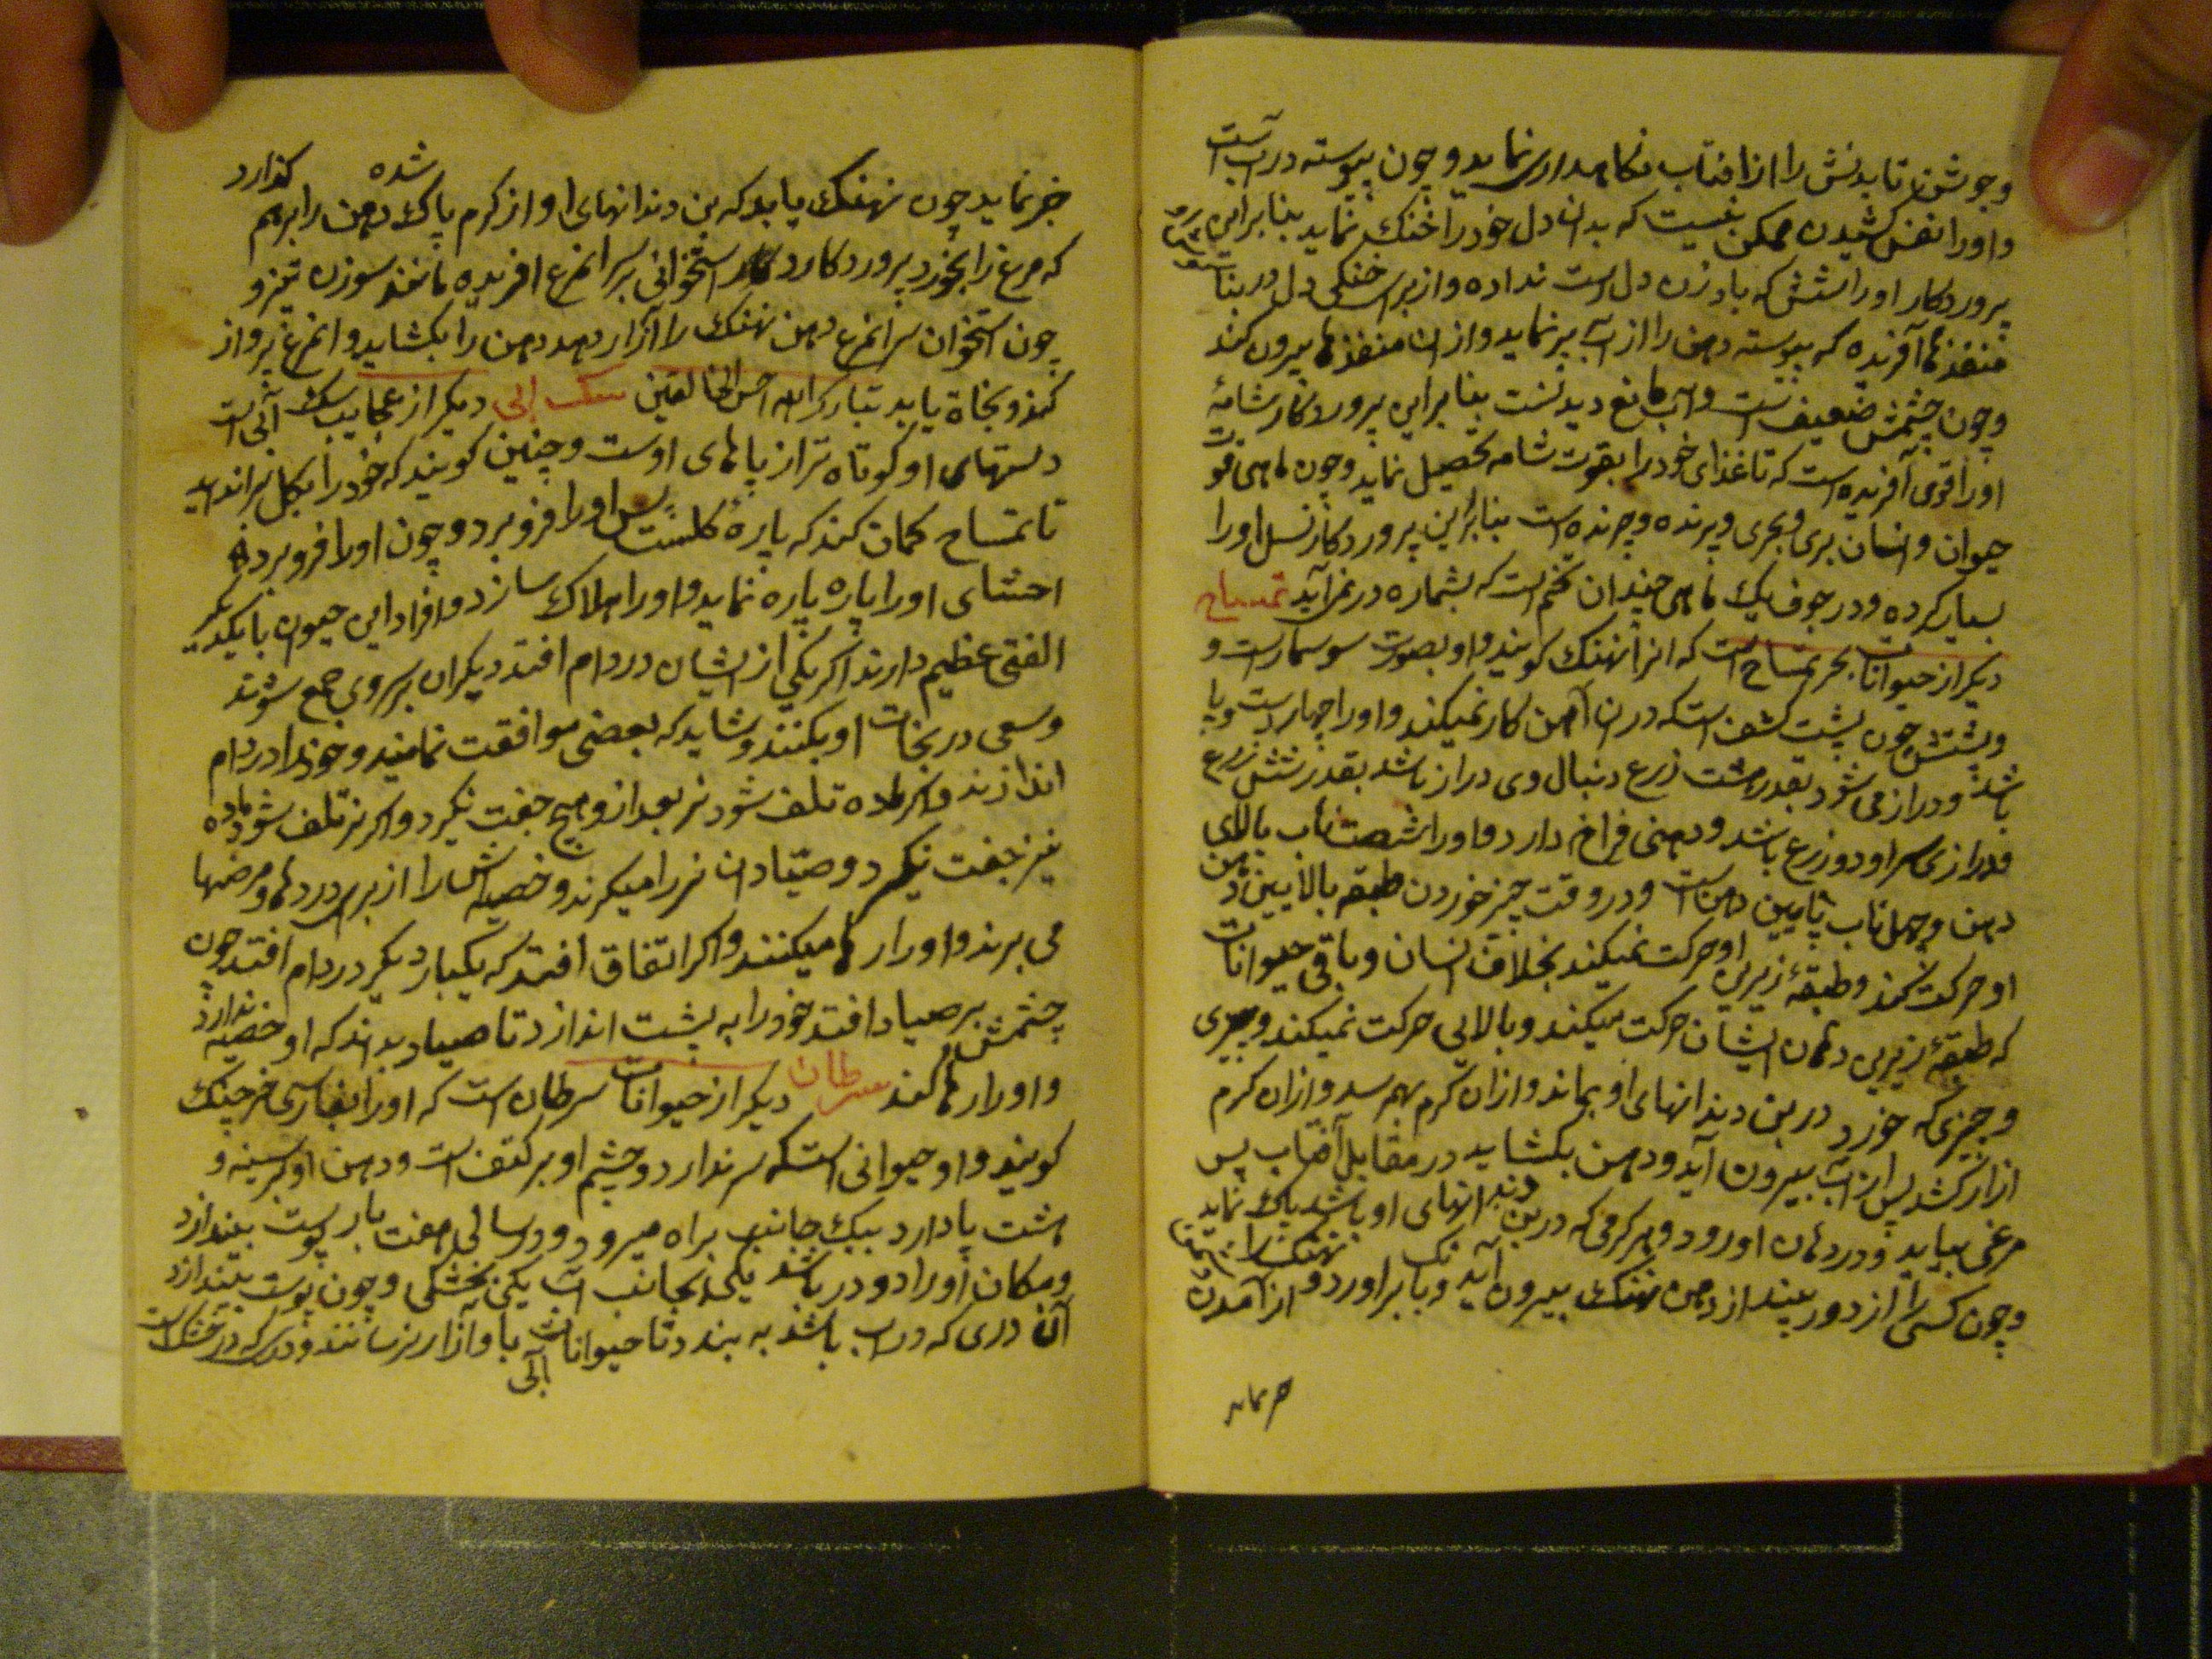 وجوشن تا بدنش را از افتاب نکاهداری نماید و چون پیوسته در آبست
و او را نفس کشیدن ممکن نیست که بدان دل خود را خنک نماید بنابراین
پروردکار او را شش که بادزن دلست نداده و از برای خنکی دل در
منفذها آفریده که پیوسته دهن را از آب پر نماید و از ان منفذها بیرون کند
و چون چشمش ضعیف است و آب مانع دیدنست بنا براین پروردکار شامهٔ
او را قوی آفریده است که تا غذای خود را بقوت شامه تحصیل نماید و چون ماهی قوت
حیوان و انسان بری و بحری و پرنده و چرنده است بنابراین پروردکار نسل او را
بسیار کرده و در جوف یک ماهی چندان تخم است که بشماره در نمی آید تمساح
دیکر از حیوانات بحر تمساح است که انرا نهنک کویند و او بصورت سوسمار است و
و پشتش چون پشت کشف است که در ان آهن کار نمیکند و او را چهار دست و پا
باشد و دراز می شود بقدر هشت ذرع دنبال وی دراز باشد بقدر شش ذرع
و درازی سر او دو ذرع باشد و دهنی فراخ دارد و او را شصت ناب بالای
دهن و چهل ناب پایین دهن است و در وقت چیز خوردن طبقه بالایین دهن
او حرکت کند و طبقهٔ زیرین او حرکت نمیکند بخلاف انسان و باقی حیوانات
که طبقهٔ زیرین دهان ایشان حرکت میکند و بالایی حرکت نمیکند و چیزی
و چیزی که خورد در بن دندانهای او بماند و از ان کرم بهم رسد و از ان کرم
ازار کشد پس از آب بیرون آید و دهن بکشاید در مقابل آفتاب پس
مرغی بیاید و در دهان او رود و هر کرمی که در بن دندانهای او باشد پاک نماید
و چون کسی را از دور بیند از دهن نهنک بیرون آید و بانک براورد و نهنک را از آمدن
خبر نماید
خبر نماید چون نهنک یابد که بن دندانهای او از کرم پاک شده دهن را برهم کذارد
که مرغ را بخورد پروردکار استخوانی بر سر انمرغ افریده مانند سوزن تیز و
چون استخوان سر انمرغ دهن نهنک را آزار دهد دهن را بکشاید و انمرغ پرواز
کند و نجاة یابد تبارک الله احسن الخالقین سک ابی دیکر از عجایب سک آبی است
دستهای او کوتاه تر از پاهای اوست و چنین کویند که خود را بکل براندای
تا تمساح کمان کند که پارهٔ کلست پس او را فرو برد و چون او را فرو برد
احشای او را پاره پاره نماید و او را هلاک سازد و افراد این حیوان با یکدیکر
الفتی عظیم دارند اکر یکی از ایشان در دام افتد دیکران بر سر وی جمع شوند
و سعی در نجات او بکنند و شاید که بعضی موافقت نمایند و خود را در دام
اندازند و اکر ماده تلف شود نر بعد از و هیچ جفت نکیرد و اکر نر تلف شود ماده
نیز جفت نکیرد و صیّادان نر را میکیرند و خصیه اش را از برای دردها و مرضها
می برند و او را رها میکنند و اکر اتفاق افتد که یکبار دیکر در دام افتد چون
چشمش بر صیاد افتد خود را به پشت اندازد تا صیاد بداند که او خصیه ندارد
و او را رها کند سرطان دیکر از حیوانات سرطان است که او را بفارسی خرچنک
کویند و او حیوانی است که سر ندارد و چشم او بر کتف است و دهن او بر سینه و
هشت پا دارد بیک جانب براه میرود و در سالی هفت بار پوست بیندازد
و مکان او را دو در باشد یکی بجانب آب یکی بخشکی و چون پوست بیندازد
آن دری که در آب باشد به بندد تا حیوانات آبی با و آزار نرسانند و دری که در خشکیست